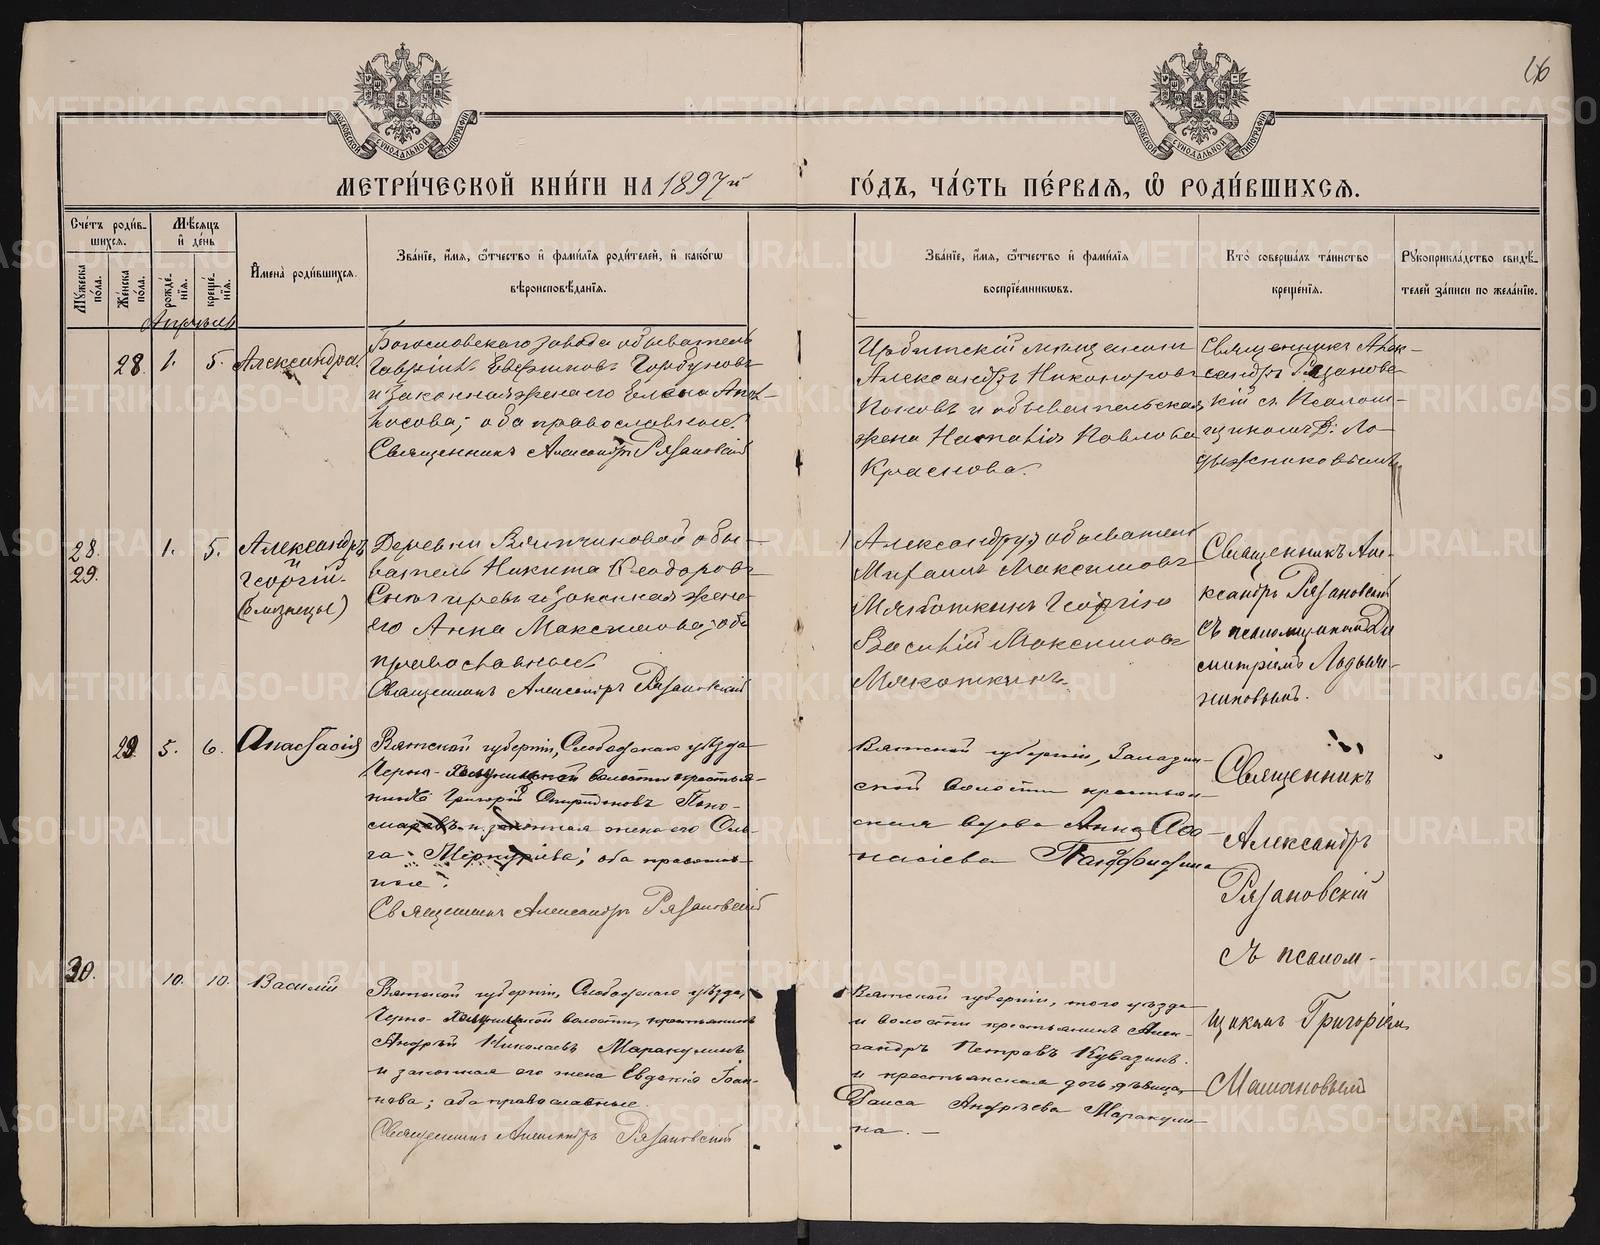 46
МЕТРИ́ЧЕСКОЙ КНИ́ГИ НА 1897й ГО́ДЪ, ЧА́СТЬ ПЕ́РВАЯ, Ѽ РОДИ́ВШИХСЯ.
Сче́тъ роди́в-
шихся.
Му́жеска по́ла.
Же́нска по́ла.
Мѣ́сяцъ
и҆ де́нь
рожде́-
нїя.
креще́-
нїя.
И҆мена̀ роди́вшихся.
Зва́нїе, и҆́мя, ѻ҆́тчество и҆ фами́лїя роди́телей, и҆ како́гѡ
вѣроисповѣ́данїя.
Зва́нїе, и҆́мя, ѻ҆́тчество и҆ фами́лїя
воспрїе́мникѡвъ.
Кто̀ соверша́лъ та́инство
креще́нїя.
Рꙋкоприкла́дство свидѣ́-
телей за́писи по жела́нїю.
Апрѣль
28. 1. 5. Александра.
Богословскаго завода обыватель
Гавріилъ Горбуновъ
и законная жена его Елена
оба православные.
Священникъ Александръ Рязановскій
Ирбитскій мѣщанинъ
Александръ Никоноровъ
Поповъ и обывательская
жена Наталія Павлова
Краснова.
Священникъ Алек-
сандръ Рязановс-
кій съ Псалом-
щикомъ Д. Ло-
дыжниковымъ
28.
29.
1. 5. Александръ
и
Георгій.
(близнецы)
Деревни обы-
ватель Никита Ѳеодоровъ
и законная жена
его Анна Максимова, оба
православные
Священникъ Александръ Рязановскій
Александру, обыватель
Михаилъ Максимовъ
Мякоткинъ Георгію
Василій Максимовъ
Мякоткинъ.
Священникъ Але-
ксандръ Рязановскій
съ псаломщикомъ Ди
митріемъ Лодыж-
никовымъ.
29. 5. 6. Анастасія
Вятской губерніи, Слободскаго уѣзда
Черно-Холуницкой волости крестья-
нинъ Григорій Спиридоновъ Поно-
маревъ и законная жена его Оль-
га Меркуріева; оба православ-
ные.
Священникъ Александръ Рязановскій
Вятской губерніи,
ской волости крестьян-
ская вдова Анна Аѳа-
насіева
Священникъ
Александръ
Рязановскій
съ псалом-
щикомъ Григоріемъ
30. 10. 10. Василій
Вятской губерніи, Слободскаго уѣзда,
Черно-Холуницкой волости, крестьянинъ
Андрей Николаевъ Маракулинъ
и законная его жена Евдокія Іоан-
нова; оба православные.
Священникъ Александръ Рязановскій
Вятской губерніи, того уѣзда
и волости крестьянинъ Алек-
сандръ Петровъ Кувазинъ.
и крестьянская дочь, дѣвица,
Раиса Андреева Маракули-
на. —
METRIKI.GASO-URAL.RU